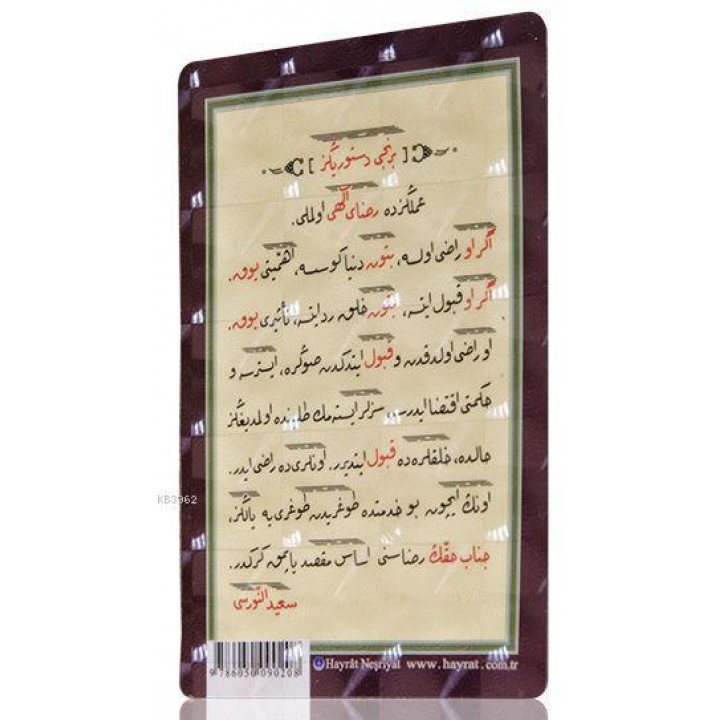 [ برنجی دستوریڭز ]
عملڭزده رضای الٰهی اولملی.
اگر او راضی اولسه، بتون دنیا كوسسه، اهمّیتی یوق.
اگر او قبول ایتسه، بتون خلق رد ایتسه، تأثیری یوق.
او راضی اولدقدن و قبول ایتدكدن صوڭره، ایسترسه و
حكمتی اقتضا ایدرسه، سزلر ایسته‌مك طلبنده اولمدیغڭز
حالده، خلقلره ده قبول ایتدیرر. اونلری ده راضی ایدر.
اونڭ ایچون بو خدمتده طوغریدن طوغری یه یالڭز،
جناب حقّڭ رضاسنی اساس مقصد یاپمق كركدر.
سعید النّورسی
KB3962
9 786050 090208
Hayrât Neşriyat www.hayrat.com.tr